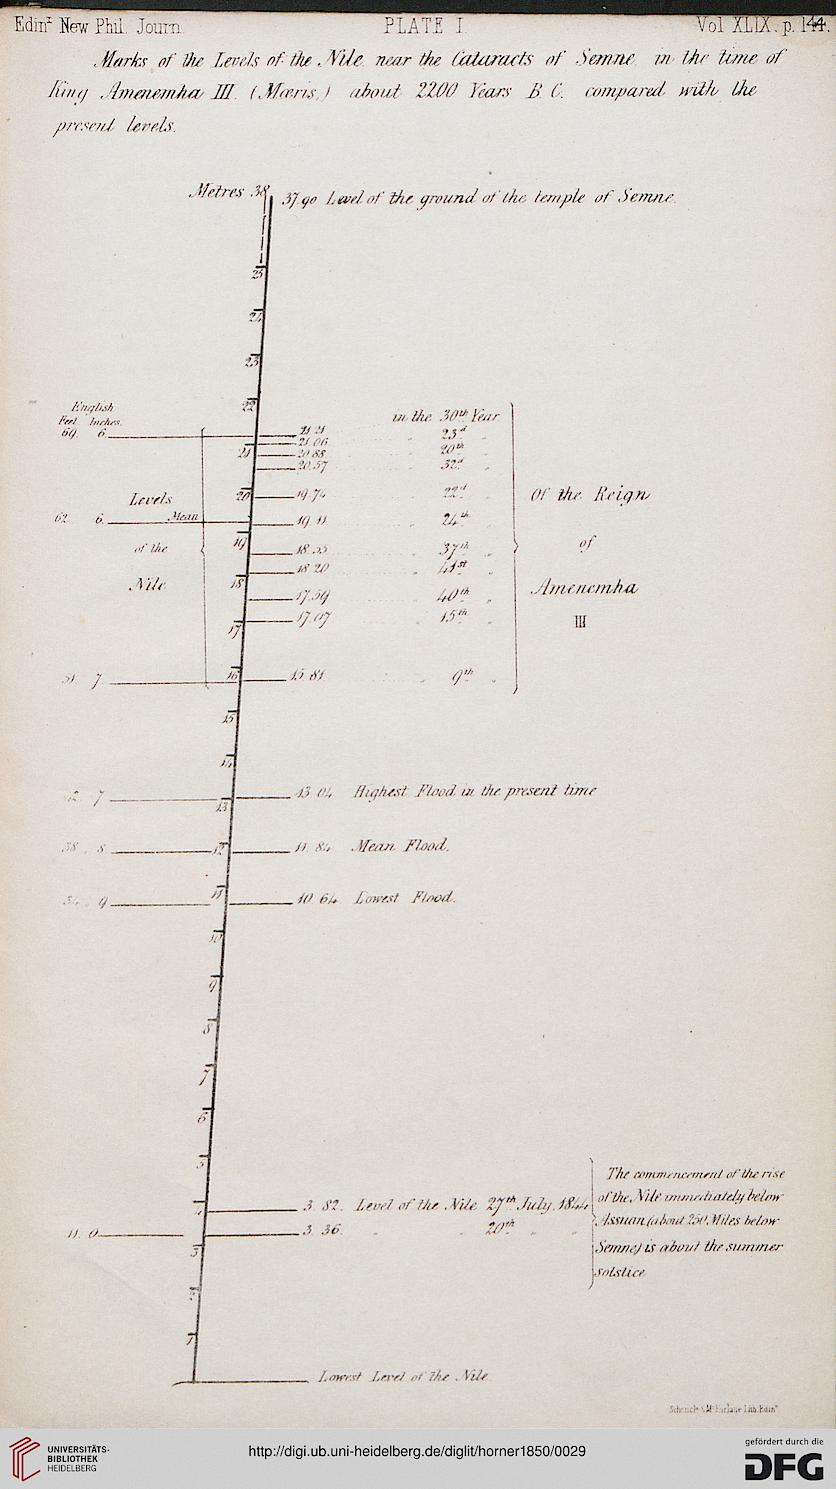 Edinr New Phil. Journ. PLATE I. Vol XLIX. p. 144.
Marks of the Levels of the Nile near the Cataracts of Semne, in the time of
King Amenemha III. (Mœris,) about 2200 Years B. C. compared with the
present levels.
Metres 38 37.90 Level of the ground of the temple of Semne.
25
24
23
22
English
Feet Inches.
in the 30th Year
69. 6. 21.21
21.06 23d "
21 20.88 20th "
20.57 32d "
20 19.74 22d "
Levels
62. 6. Mean 19.11 24th "
19
of the
18.55 37th "
18.20 41st "
18
Nile
17.59 40th "
17.07 15th "
17
51. 7. 16 15.81 9th "
Of the Reign
of
Amenemha
III
15
14
42. 7 13.04 Highest Flood in the present time
13
38. 8. 12 11.84 Mean Flood.
11
34. 9 10.64 Lowest Flood.
10
9
8
7
6
5
4
3.82. Level of the Nile 27th July 1844
11. 0. 3.36. " " 20th " "
3
2
1
The commencement of the rise
of the Nile immediately below
Assuan (about 250 Miles below
Semne) is about the summer
solstice
Lowest Level of the Nile.
Schenck & McFarlane Lith. Edinr
UNIVERSITÄTS-
BIBLIOTHEK
HEIDELBERG
http://digi.ub.uni-heidelberg.de/diglit/horner1850/0029
gefördert durch die
DFG